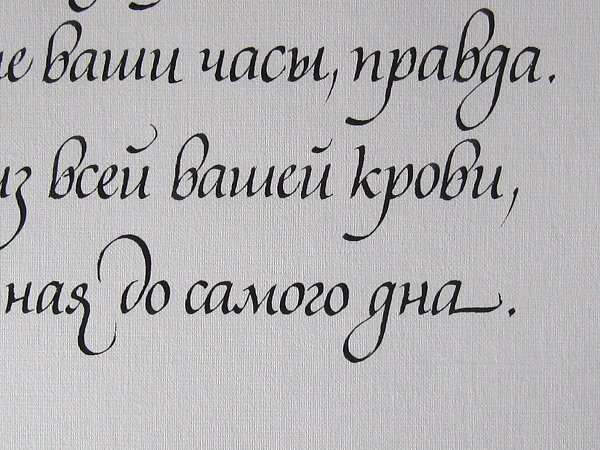 ваши часы, правда.
из всей вашей крови,
ная до самого дна.